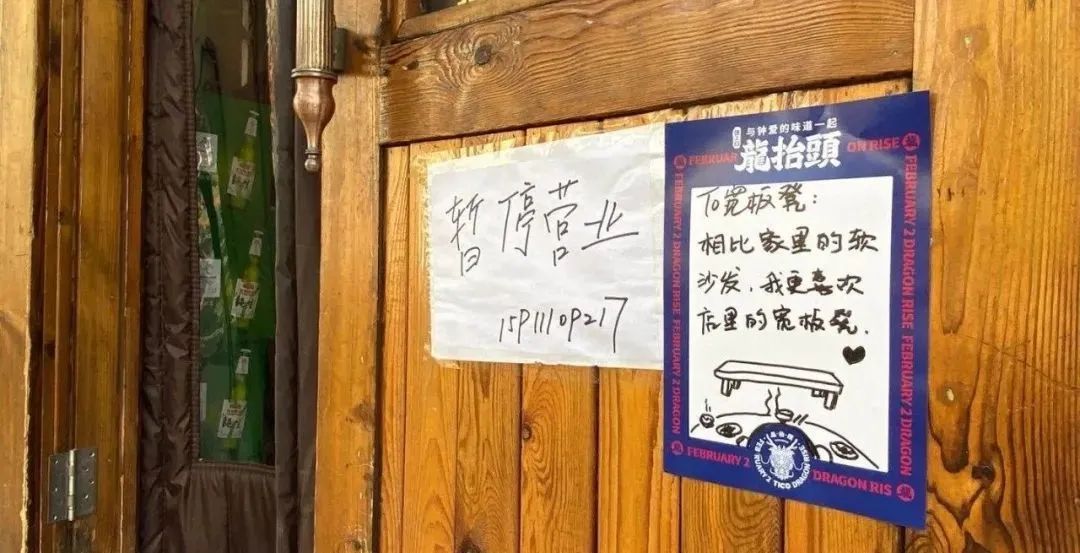 暂停营业
15911109217
与钟爱的味道一起
龍抬頭
FEBRUAR
ON RISE
To宽板凳：
相比家里的软
沙发，我更喜欢
店里的宽板凳．
FEBRUARY 2 DRAGON RISE FEBRUARY 2 DRAGON
FEBRUARY 2 DRAGON RISE FEBRUARY 2 DRAGON
FEBRUARY 2
DRAGON RIS